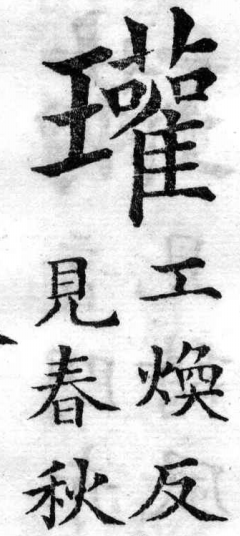 瓘
工煥反
見春秋